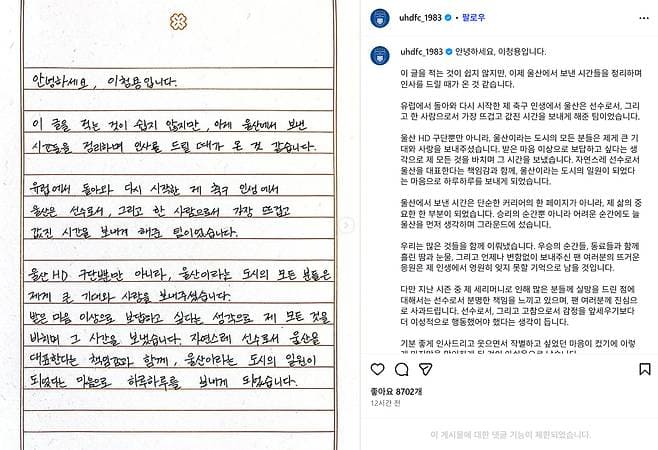 안녕하세요, 이청용입니다.
이 글을 적는 것이 쉽지 않지만, 이제 울산에서 보낸
시간들을 정리하며 인사를 드릴 때가 온 것 같습니다.
유럽에서 돌아와 다시 시작한 제 축구 인생에서
울산은 선수로서, 그리고 한 사람으로서 가장 뜨겁고
값진 시간을 보내게 해준 팀이었습니다.
울산 HD 구단뿐만 아니라, 울산이라는 도시의 모든 분들은
제게 큰 기대와 사랑을 보내주셨습니다.
받은 마음 이상으로 보답하고 싶다는 생각으로 제 모든 것을
바치며 그 시간을 보냈습니다. 자연스레 선수로서 울산을
대표한다는 책임감과 함께, 울산이라는 도시의 일원이
되었다는 마음으로 하루하루를 보내게 되었습니다.
uhdfc_1983 • 팔로우
uhdfc_1983 안녕하세요, 이청용입니다.
이 글을 적는 것이 쉽지 않지만, 이제 울산에서 보낸 시간들을 정리하며
인사를 드릴 때가 온 것 같습니다.
유럽에서 돌아와 다시 시작한 제 축구 인생에서 울산은 선수로서, 그리
고 한 사람으로서 가장 뜨겁고 값진 시간을 보내게 해준 팀이었습니다.
울산 HD 구단뿐만 아니라, 울산이라는 도시의 모든 분들은 제게 큰 기
대와 사랑을 보내주셨습니다. 받은 마음 이상으로 보답하고 싶다는 생
각으로 제 모든 것을 바치며 그 시간을 보냈습니다. 자연스레 선수로서
울산을 대표한다는 책임감과 함께, 울산이라는 도시의 일원이 되었다
는 마음으로 하루하루를 보내게 되었습니다.
울산에서 보낸 시간은 단순한 커리어의 한 페이지가 아니라, 제 삶의 중
요한 한 부분이 되었습니다. 승리의 순간뿐 아니라 어려운 순간에도 늘
울산을 먼저 생각하며 그라운드에 섰습니다.
우리는 많은 것들을 함께 이뤄냈습니다. 우승의 순간들, 동료들과 함께
흘린 땀과 눈물, 그리고 언제나 변함없이 보내주신 팬 여러분의 뜨거운
응원은 제 인생에서 영원히 잊지 못할 기억으로 남을 것입니다.
다만 지난 시즌 중 제 세리머니로 인해 많은 분들께 실망을 드린 점에
대해서는 선수로서 분명한 책임을 느끼고 있으며, 팬 여러분께 진심으
로 사과드립니다. 선수로서, 그리고 고참으로서 감정을 앞세우기보다
더 이성적으로 행동했어야 했다는 생각이 듭니다.
기분 좋게 인사드리고 웃으면서 작별하고 싶었던 마음이 컸기에 이렇
좋아요 8702개
12시간 전
이 게시물에 대한 댓글 기능이 제한되었습니다.